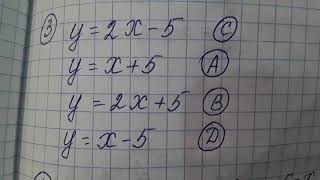 ③ y = 2x - 5 Ⓒ
y = x + 5 Ⓐ
y = 2x + 5 Ⓑ
y = x - 5 Ⓓ